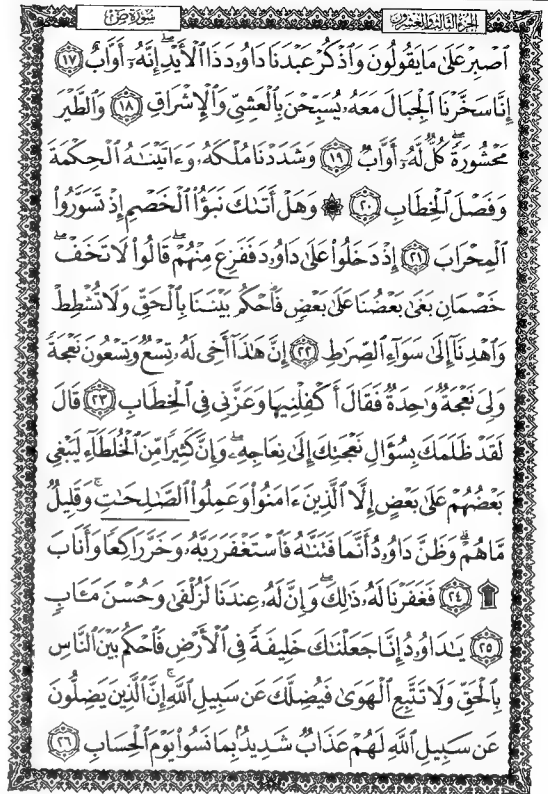 الجزء الثالث والعشرون
سورة ص
ٱصۡبِرۡ عَلَىٰ مَا يَقُولُونَ وَٱذۡكُرۡ عَبۡدَنَا دَاوُۥدَ ذَا ٱلۡأَيۡدِۖ إِنَّهُۥٓ أَوَّابٌ ١٧
إِنَّا سَخَّرۡنَا ٱلۡجِبَالَ مَعَهُۥ يُسَبِّحۡنَ بِٱلۡعَشِيِّ وَٱلۡإِشۡرَاقِ ١٨ وَٱلطَّيۡرَ
مَحۡشُورَةٗۖ كُلّٞ لَّهُۥٓ أَوَّابٞ ١٩ وَشَدَدۡنَا مُلۡكَهُۥ وَءَاتَيۡنَٰهُ ٱلۡحِكۡمَةَ
وَفَصۡلَ ٱلۡخِطَابِ ٢٠ ۞ وَهَلۡ أَتَىٰكَ نَبَؤُاْ ٱلۡخَصۡمِ إِذۡ تَسَوَّرُواْ
ٱلۡمِحۡرَابَ ٢١ إِذۡ دَخَلُواْ عَلَىٰ دَاوُۥدَ فَفَزِعَ مِنۡهُمۡۖ قَالُواْ لَا تَخَفۡۖ
خَصۡمَانِ بَغَىٰ بَعۡضُنَا عَلَىٰ بَعۡضٖ فَٱحۡكُم بَيۡنَنَا بِٱلۡحَقِّ وَلَا تُشۡطِطۡ
وَٱهۡدِنَآ إِلَىٰ سَوَآءِ ٱلصِّرَٰطِ ٢٢ إِنَّ هَٰذَآ أَخِي لَهُۥ تِسۡعٞ وَتِسۡعُونَ نَعۡجَةٗ
وَلِيَ نَعۡجَةٞ وَٰحِدَةٞ فَقَالَ أَكۡفِلۡنِيهَا وَعَزَّنِي فِي ٱلۡخِطَابِ ٢٣ قَالَ
لَقَدۡ ظَلَمَكَ بِسُؤَالِ نَعۡجَتِكَ إِلَىٰ نِعَاجِهِۦۖ وَإِنَّ كَثِيرٗا مِّنَ ٱلۡخُلَطَآءِ لَيَبۡغِي
بَعۡضُهُمۡ عَلَىٰ بَعۡضٍ إِلَّا ٱلَّذِينَ ءَامَنُواْ وَعَمِلُواْ ٱلصَّٰلِحَٰتِ وَقَلِيلٞ
مَّا هُمۡۗ وَظَنَّ دَاوُۥدُ أَنَّمَا فَتَنَّٰهُ فَٱسۡتَغۡفَرَ رَبَّهُۥ وَخَرَّۤ رَاكِعٗاۤ وَأَنَابَ
۩ ٢٤ فَغَفَرۡنَا لَهُۥ ذَٰلِكَۖ وَإِنَّ لَهُۥ عِندَنَا لَزُلۡفَىٰ وَحُسۡنَ مَـَٔابٖ
٢٥ يَٰدَاوُۥدُ إِنَّا جَعَلۡنَٰكَ خَلِيفَةٗ فِي ٱلۡأَرۡضِ فَٱحۡكُم بَيۡنَ ٱلنَّاسِ
بِٱلۡحَقِّ وَلَا تَتَّبِعِ ٱلۡهَوَىٰ فَيُضِلَّكَ عَن سَبِيلِ ٱللَّهِۚ إِنَّ ٱلَّذِينَ يَضِلُّونَ
عَن سَبِيلِ ٱللَّهِ لَهُمۡ عَذَابٞ شَدِيدُۢ بِمَا نَسُواْ يَوۡمَ ٱلۡحِسَابِ ٢٦